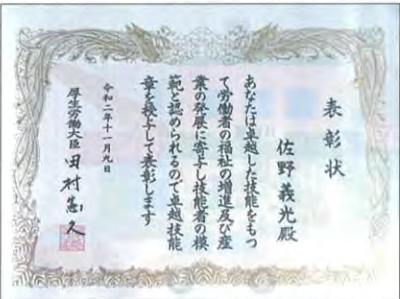 表彰状
佐野義光殿
あなたは卓越した技能をもつ
て労働者の福祉の増進及び産
業の発展に寄与し技能者の模
範と認められるので卓越技能
章を授与して表彰します
令和二年十一月九日
厚生労働大臣 田村憲久